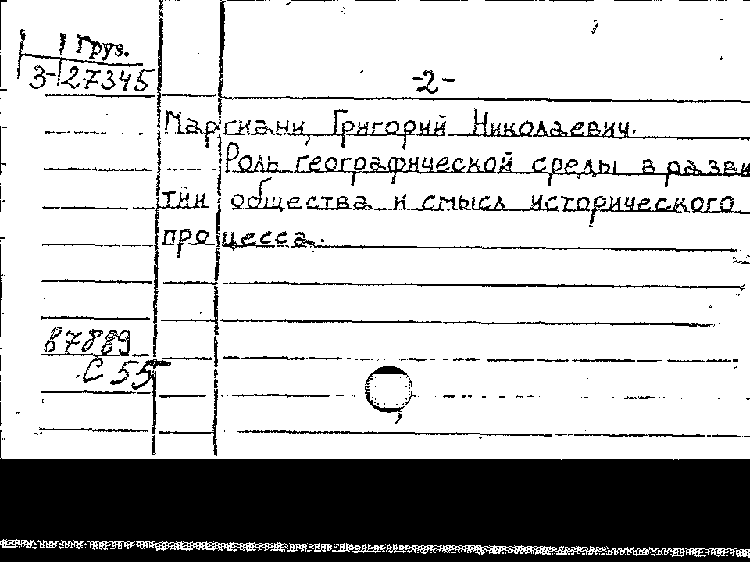 Груз.
3-27345
-2-
Маргиани, Григорий Николаевич.
Роль географической среды в разви
тии общества и смысл исторического
процесса.
87889
С 55